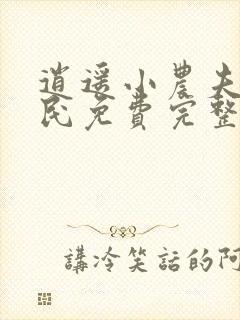 逍遥小農夫
民免費完整
講冷笑話的阿